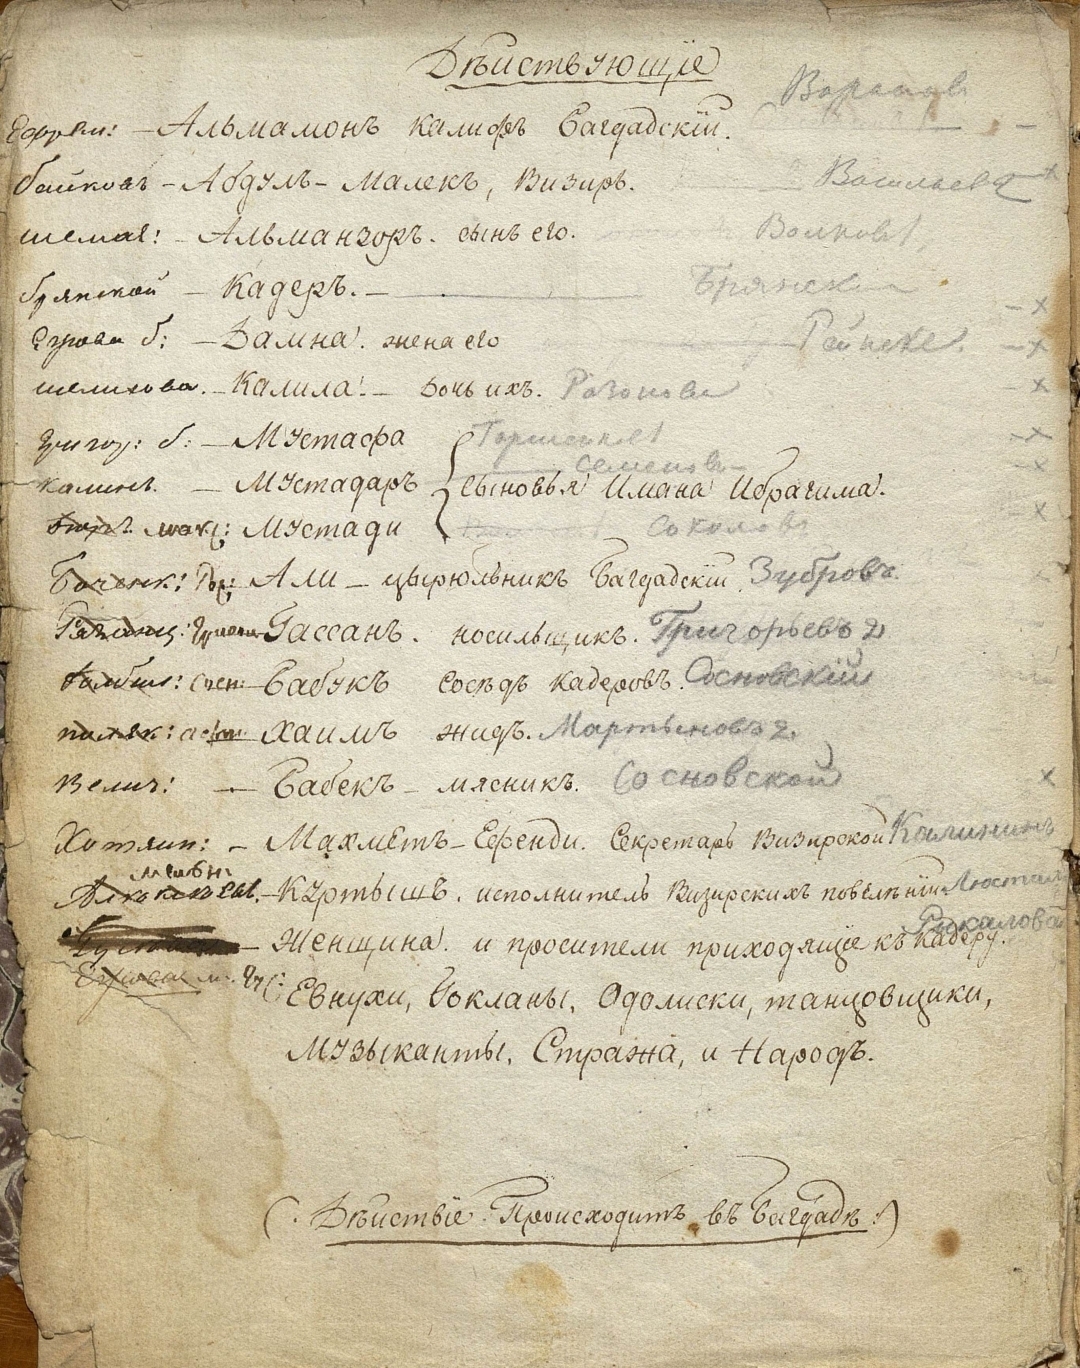 Дѣйствующіе
Ефрем: – Альмамонъ калифъ Багдадскій.
байковъ – Абдулъ – Малекъ, Визирь. Васильева
шемае: – Альманзоръ. сынъ его. Волков
брянской – Кадеръ. – Брянск
б: – Замна. жена его
шелихова. – Калила. – дочь ихъ. Разонова
Григор: б: – Мустафа
калин. – Мустадаръ { сыновья Имана Ибрагима. Семенова
Мустади Соколовъ
Боченк: Али – цырюльникъ Багдадскій. Зубровъ.
Гассанъ. носильщикъ. Григорьевъ 2
сосн: Бабукъ сосѣдъ кадеровъ. Сосновскій
Хаимъ жидъ. Мартыновъ 2.
Велич: – Бабекъ – мясникъ. Сосновской
Хотяин: – Махметъ – Ефенди. Секретарь Визирской Калининъ
Куртышъ. исполнитель Визирскихъ повелѣній
– Женщина. и просители приходящіе къ кадеру. Рыкалова
Евнухи, Бокланы, Одолиски, танцовщики,
Музыканты, Стража, и Народъ.
(. Дѣйствіе Происходитъ въ Багдадѣ .)